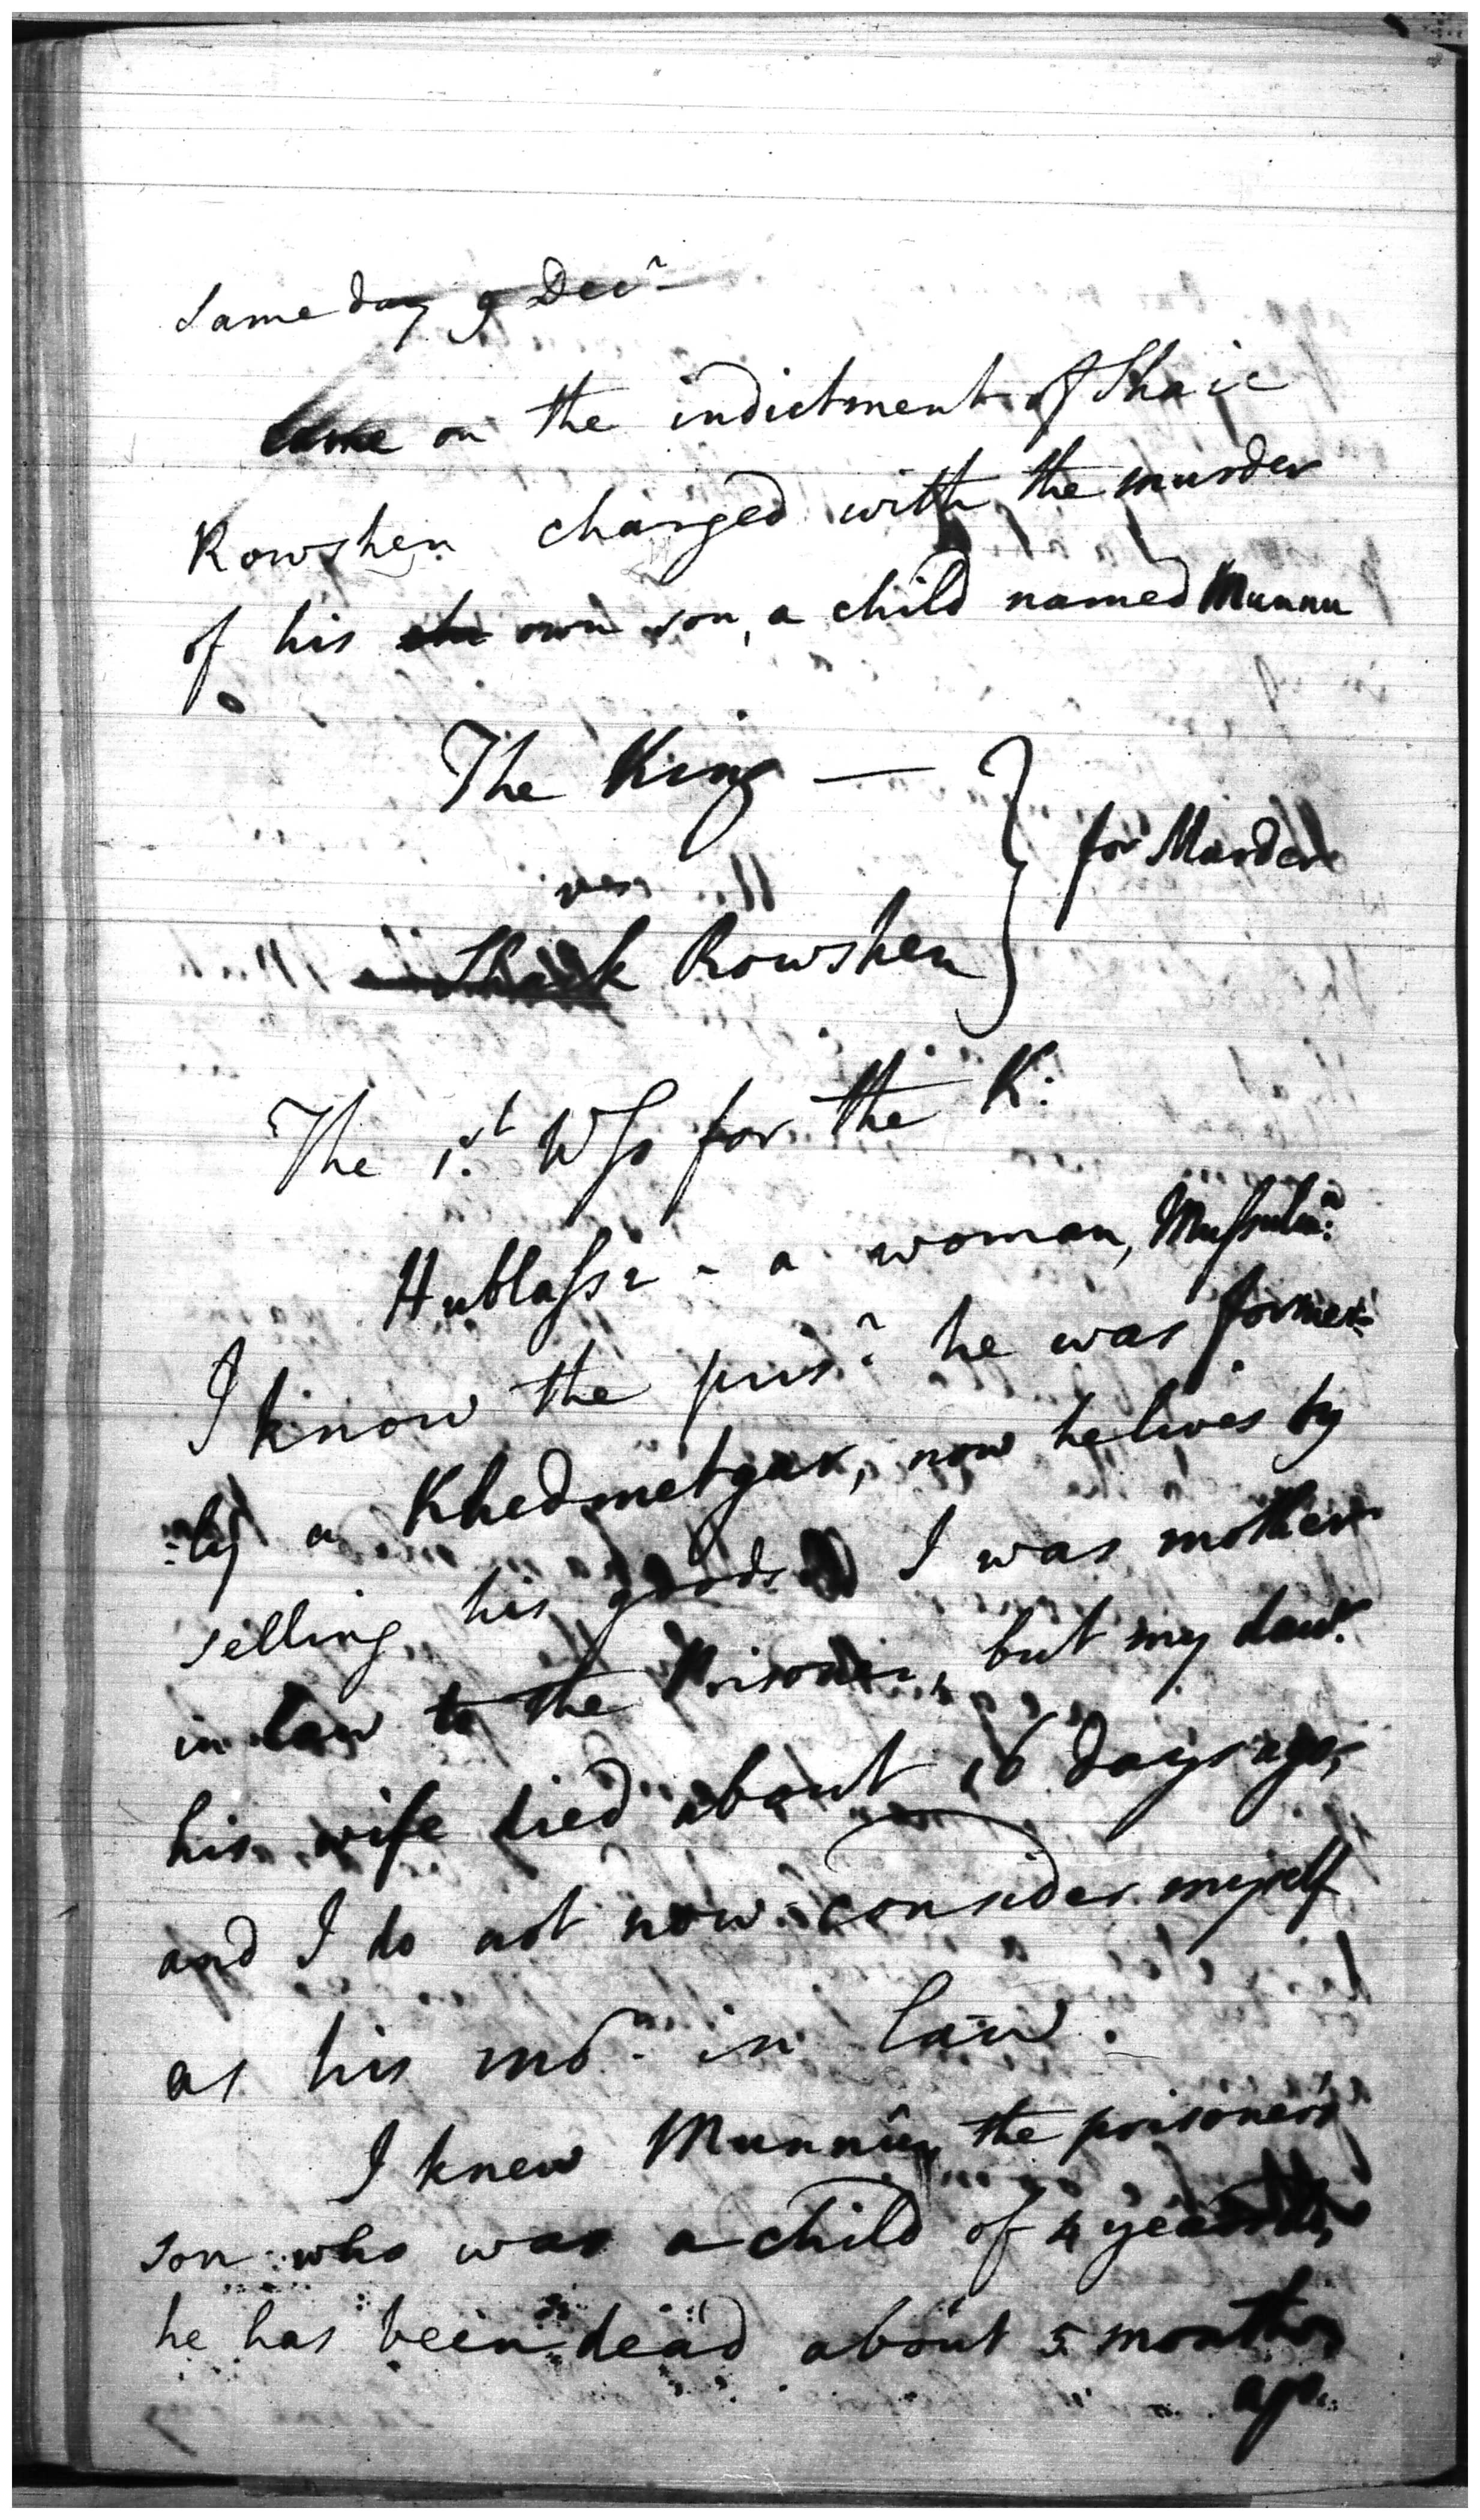 Same day 9 Decr
Came on the indictment of Shaic
Rowshen charged with the murder
of his own son, a child named Munnu
The King —
for Murder
ver
Shaik Rowshen
The 1st Wss for the K:
Hublassi - a woman, Mussulmn:
I know the prisr he was former=
=ly a Khedmetgar, now he lives by
selling his goods I was mother
in law to the Prisoner, but my daur
his wife died about 16 days ago,
and I do not now consider myself
as his mor in law.
I knew Munnu, the prisoner's
son who was a child of 4 years
he has been dead about 5 months
ago.